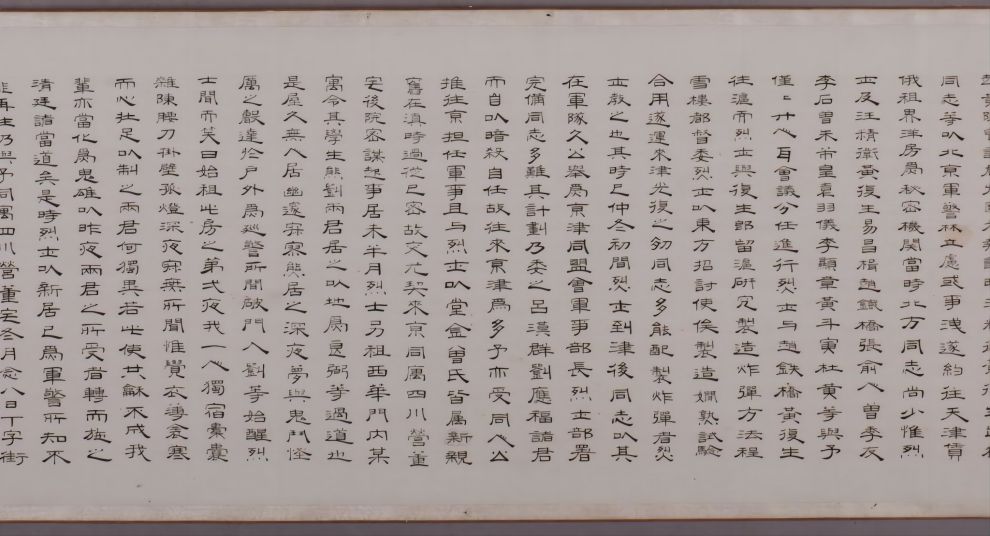 同志等以北京軍警林立慮或事淺遂約往天津賃
俄租界洋房為秘密機關當時北方同志尚少惟烈
士及汪精衛黃復生易昌楫趙鐵橋張俞人曾季友
李石曾朱芾皇袁羽儀李顯章黃斗寅杜黃等與予
僅〻廿人耳會議分任進行烈士与趙鉄橋黃復生
往滬而烈士與復生即留滬研究製造炸彈方法程
雪樓都督委烈士以東方招討使俟製造嫻熟試驗
合用遂運來津光復之初同志多能配製炸彈者烈
士教之也其時已仲冬初間烈士到津後同志以其
在軍隊久公舉為京津同盟會軍事部長烈士部署
完備同志多難其計劃乃委之呂漢群劉應福諸君
而自以暗殺自任故往來京津為多予亦受同人公
推往京担任軍事且与烈士以堂金曾氏皆属新親
舊在滇時過從已密故交尤契來京同寓四川營董
宅後院密謀起事居未半月烈士另租西華門内某
寓令其學生熊劉兩君居之以地屬良弼等過道也
是屋久無人居幽邃寂寞熊居之深夜夢與鬼鬥怪
厲之聲達於戶外為巡警所聞破門入劉等始醒烈
士聞而笑曰始租此房之第弍夜我一人獨宿橐囊
雜陳腰刀掛壁孤燈深夜寂無所聞惟覺衣薄衾寒
而心壯足以制之兩君何獨異若此使共龢不成我
輩亦當化為鬼雄以昨夜兩君之所受者轉而施之
清廷諸當道矣是時烈士以新居已為軍警所知不
再住乃與予同寓四川營董宅冬月念八日丁字街